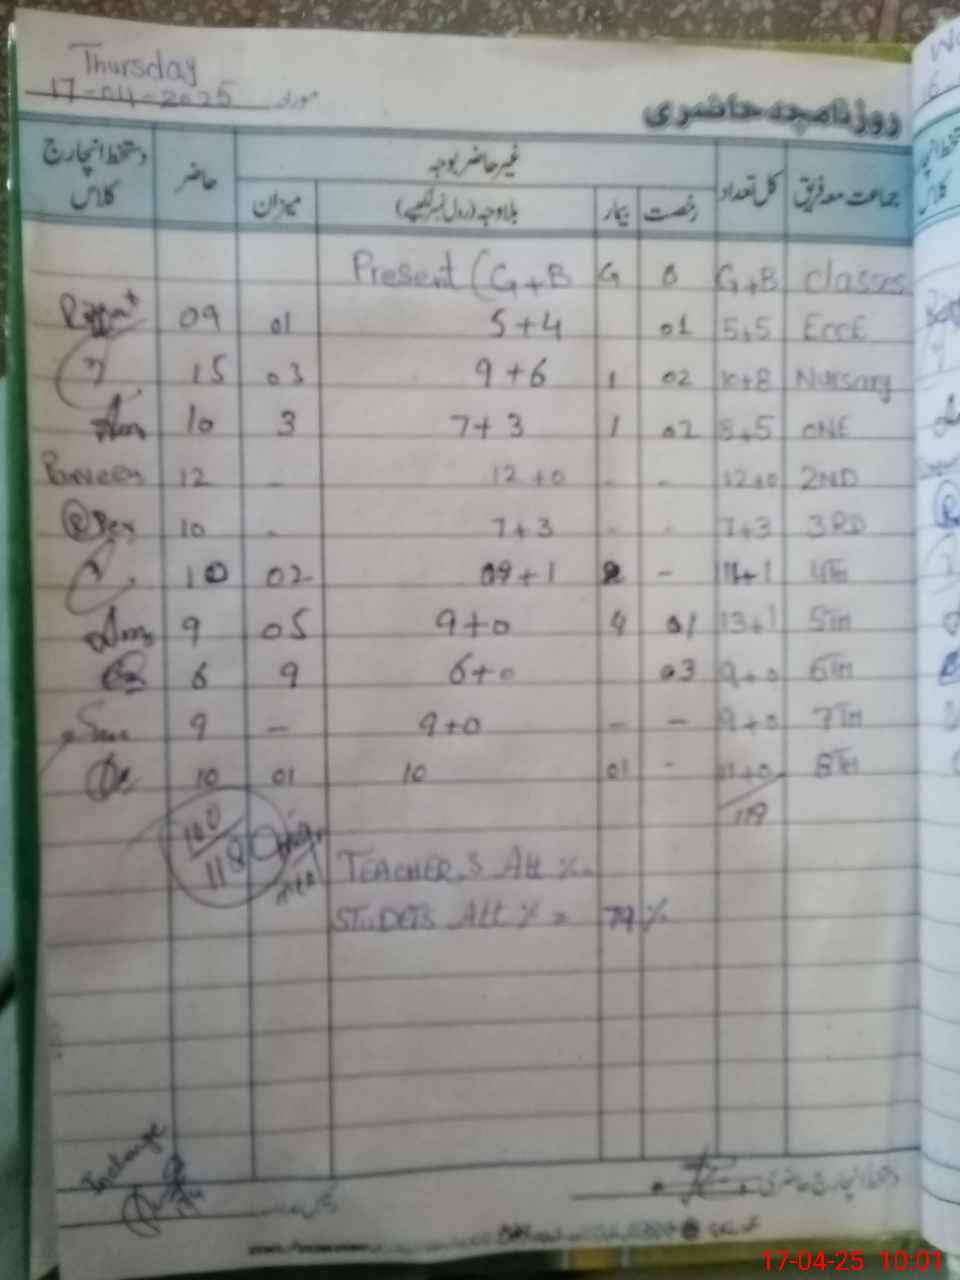 Thursday
17-04-2025 مورخہ
روزنامچہ حاضری
جماعت معہ فریق کل تعداد غیر حاضر بوجہ حاضر دستخط انچارج کلاس
رخصت بیمار بلاوجہ (رول نمبر لکھیے) میزان
Present (G+B G B G+B classes
09 01 5+4 01 5+5 EccE
15 03 9+6 1 02 10+8 Nursary
10 3 7+3 1 02 8+5 ONE
Parveen 12 - 12+0 - - 12+0 2ND
10 - 7+3 - - 7+3 3RD
10 02 09+1 2 - 11+1 4TH
9 05 9+0 4 01 13+1 5TH
6 9 6+0 03 9+0 6TH
9 - 9+0 - - 9+0 7TH
10 01 10 01 - 11+0 8TH
100 119
118
TEACHER,S Att %=
STUDETS Att % = 79 %
Incharge
دستخط انچارج حاضری
17-04-25 10:01